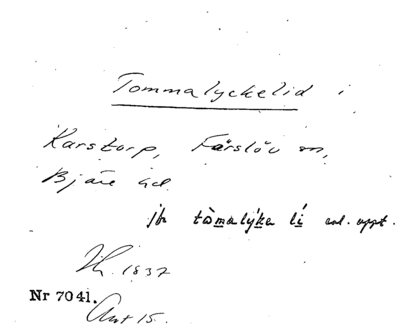 Tommalyckelid i
Karstorp, Färslöv sn,
Bjäre hd.
jfr tòmalýka lí enl. uppt.
Th. 1837
Nr 7041.
Ant 15.